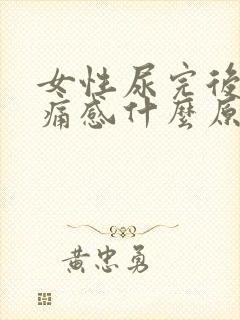 女性尿完後
痛感什麼原
黃忠勇